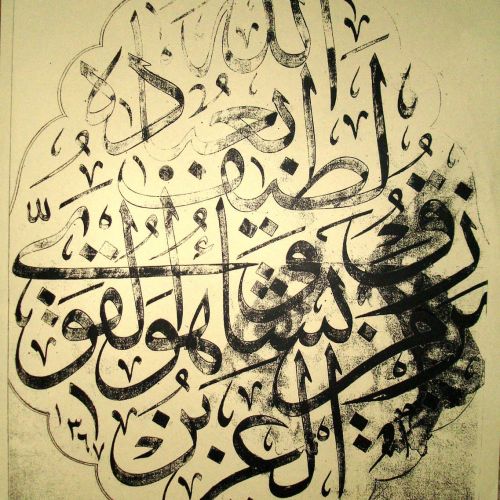 الله لطيف بعباده
يرزق من يشاء وهو القوىّ
العزيز
١٣٦٧